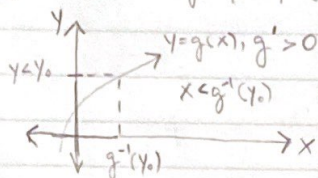 y
y=g(x), g'>0
y<y₀
x<g⁻¹(y₀)
x
g⁻¹(y₀)